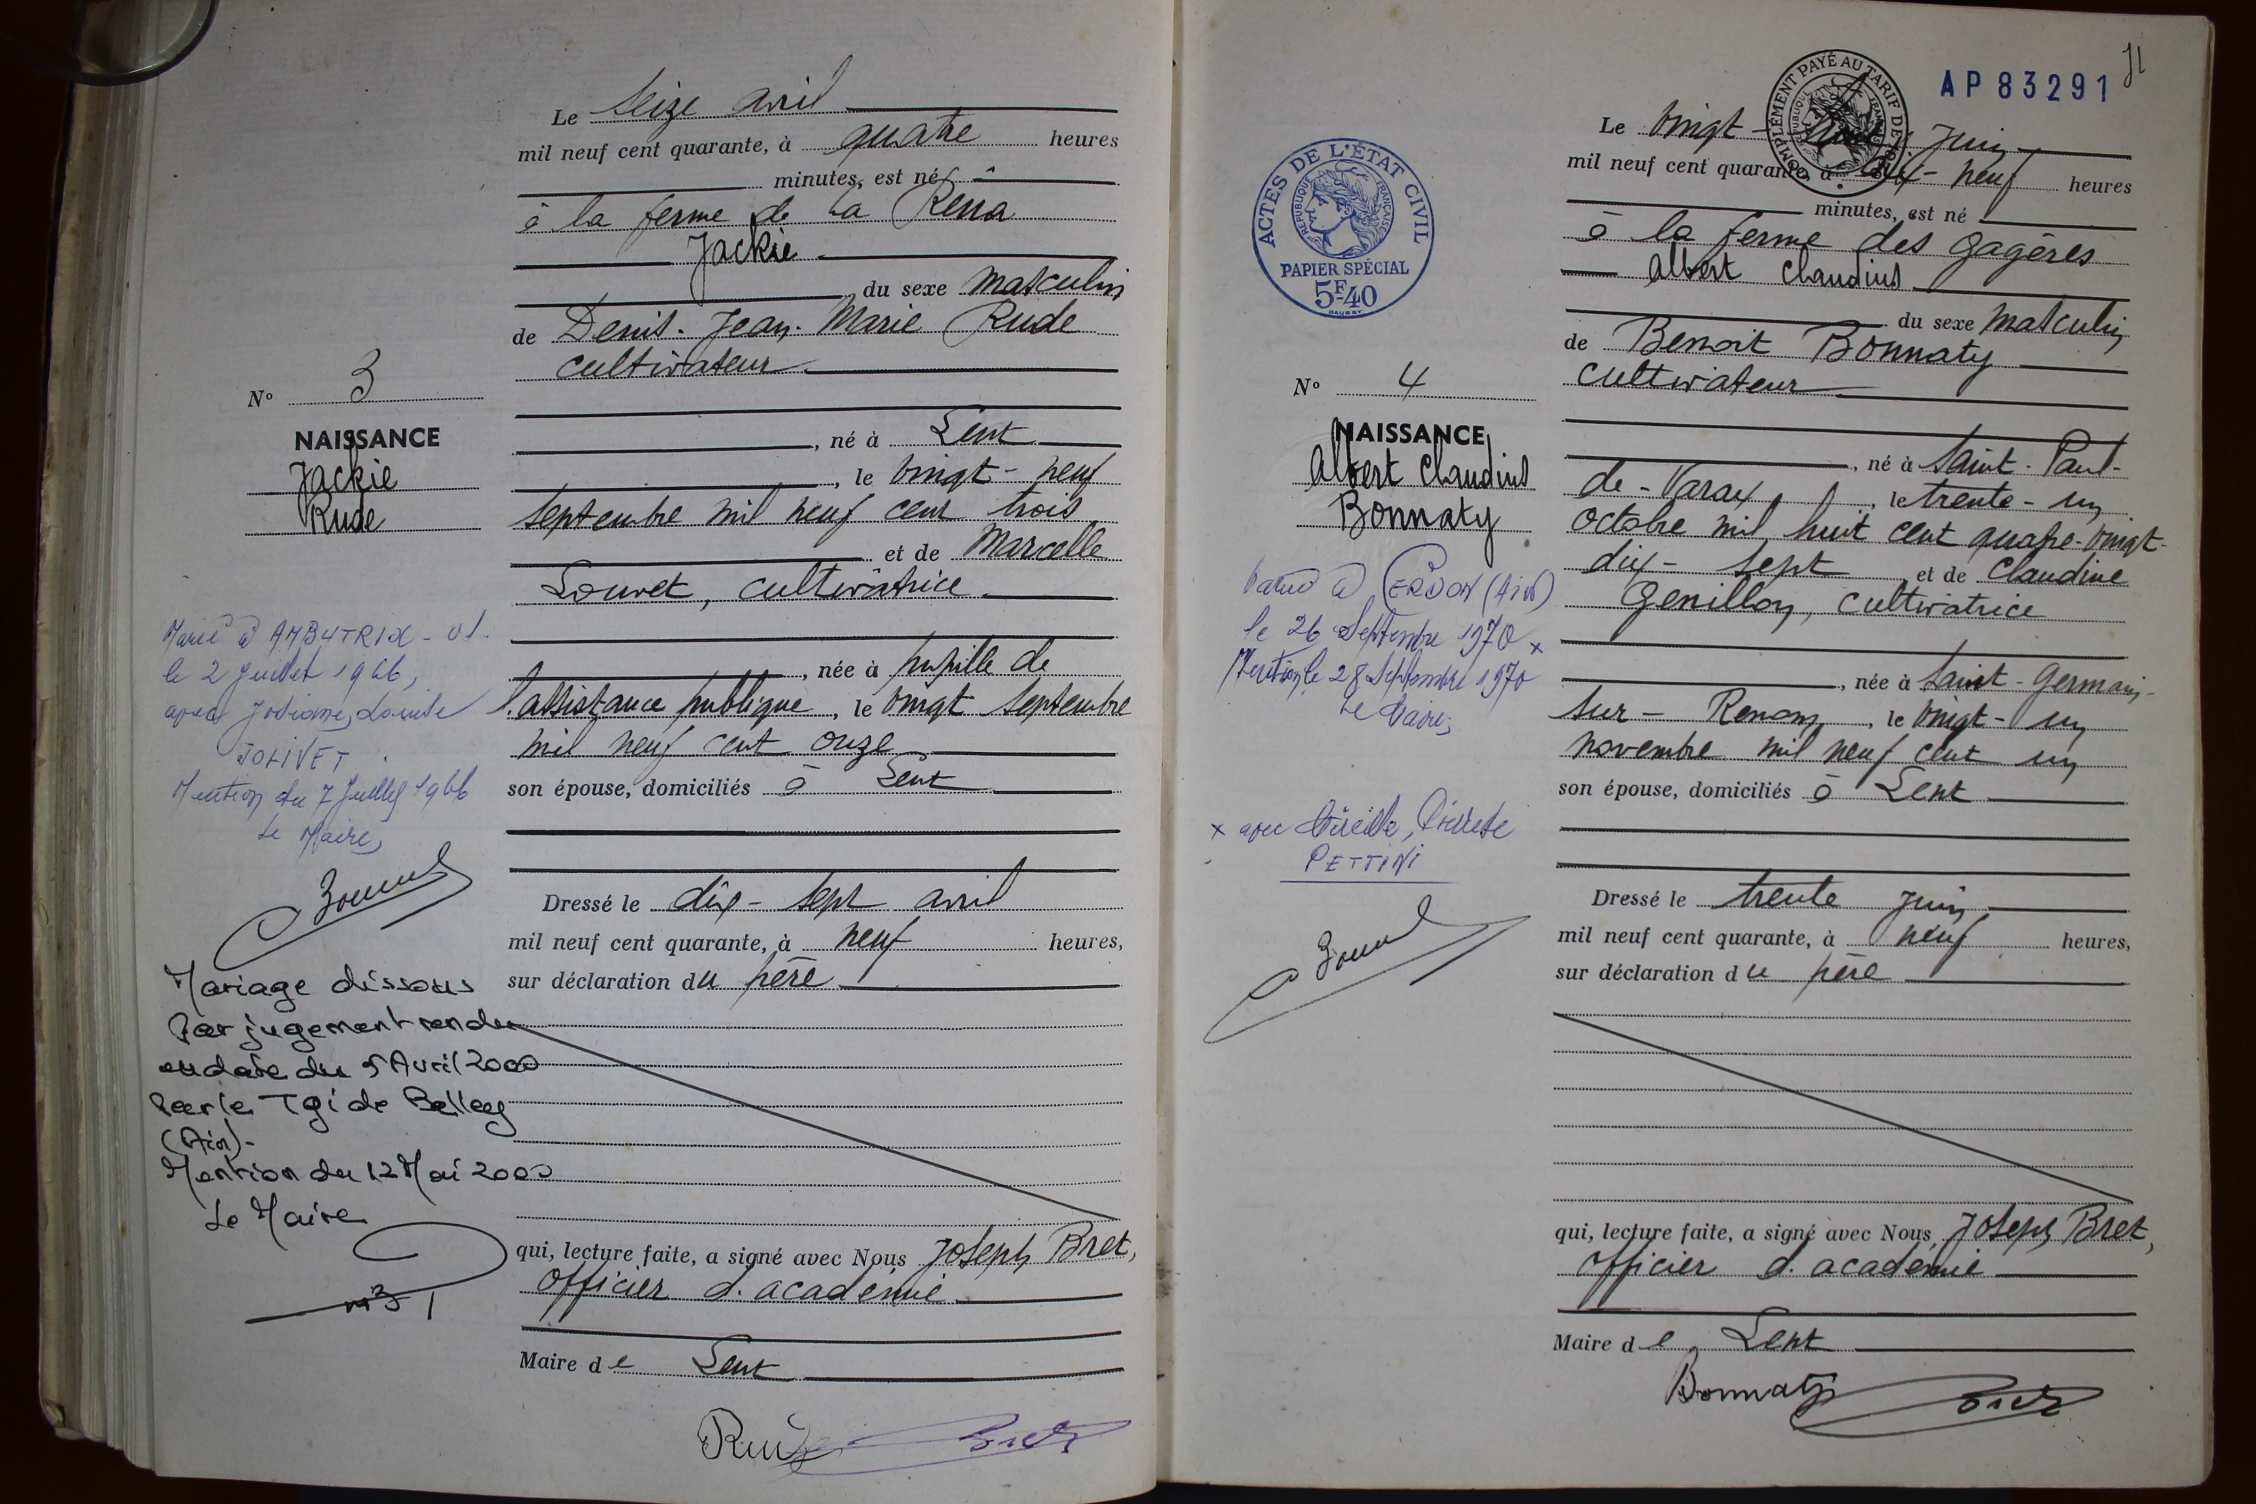 Le Seize avril
mil neuf cent quarante, à quatre heures
minutes, est né
à la ferme de La Rena
Jackie
du sexe masculin
de Denis-Jean-Marie Rude
cultivateur
N° 3
NAISSANCE
Jackie
Rude
, né à Lent
, le vingt-neuf
septembre mil neuf cent trois
et de Marcelle
Louvet, cultivatrice
, née à pupille de
l'assistance publique, le vingt septembre
mil neuf cent onze
son épouse, domiciliés à Lent
Marié à AMBUTRIX - 01-
le 2 Juillet 1966,
avec Josiane, Louise
JOLIVET
Mention du 7 Juillet 1966
Le Maire,
Dressé le dix-sept avril
mil neuf cent quarante, à neuf heures,
sur déclaration du père
Mariage dissous
Par jugement rendu
en date du 5 Avril 2000
Par le Tgi de Belley
(Ain)-
Mention du 12 Mai 2000
Le Maire
qui, lecture faite, a signé avec Nous Joseph Bret,
officier d'académie
Maire de Lent
Rude Bret
AP 83291
71
COMPLÉMENT PAYÉ AU TARIF DE
Le vingt- juin
mil neuf cent quarante, à dix-neuf heures
minutes, est né
à la ferme des gagères
albert claudius
du sexe masculin
de Benoit Bonnaty
cultivateur
ACTES DE L'ÉTAT CIVIL
RÉPUBLIQUE FRANÇAISE
PAPIER SPÉCIAL
5F40
N° 4
NAISSANCE
albert claudius
Bonnaty
, né à Saint-Paul-
de-Varax, le trente-un
octobre mil huit cent quatre-vingt-
dix-sept et de claudine
genillon, cultivatrice
, née à Saint-germain-
sur-Renom, le vingt-un
novembre mil neuf cent un
son épouse, domiciliés à Lent
Marié à CERDON (Ain)
le 26 Septembre 1970 x
Mention le 28 Septembre 1970
Le Maire,
x avec Mireille, Pierrete
PETTINI
Dressé le trente juin
mil neuf cent quarante, à neuf heures,
sur déclaration du père
qui, lecture faite, a signé avec Nous, Joseph Bret,
officier d'académie
Maire de Lent
Bonnaty Bret